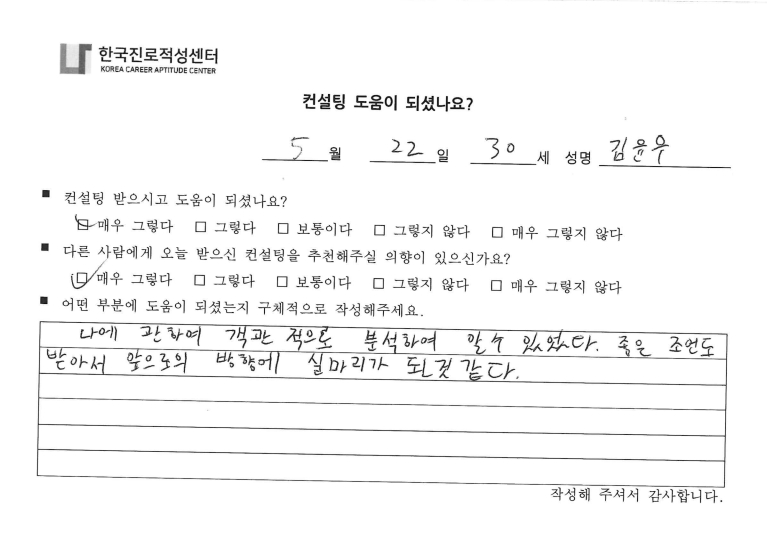 한국진로적성센터
KOREA CAREER APTITUDE CENTER
컨설팅 도움이 되셨나요?
5 월 22 일 30 세 성명 김윤우
■ 컨설팅 받으시고 도움이 되셨나요?
☑ 매우 그렇다 □ 그렇다 □ 보통이다 □ 그렇지 않다 □ 매우 그렇지 않다
■ 다른 사람에게 오늘 받으신 컨설팅을 추천해주실 의향이 있으신가요?
☑ 매우 그렇다 □ 그렇다 □ 보통이다 □ 그렇지 않다 □ 매우 그렇지 않다
■ 어떤 부분에 도움이 되셨는지 구체적으로 작성해주세요.
나에 관하여 객관적으로 분석하여 알 수 있었다. 좋은 조언도
받아서 앞으로의 방향에 실마리가 된 것 같다.
작성해 주셔서 감사합니다.